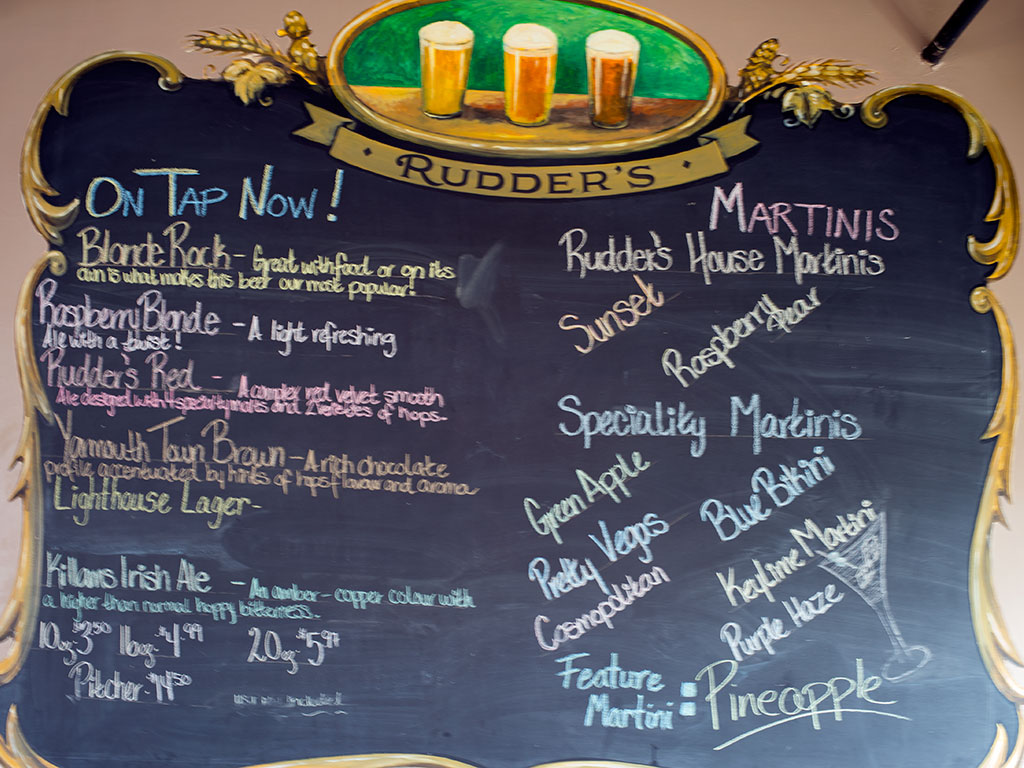 RUDDER'S
ON TAP NOW!
Blonde Rock - Great with food or on its
own is what makes this beer our most popular!
Raspberry Blonde - A light refreshing
Ale with a twist!
Rudder's Red - A complex red velvet smooth
Ale designed with 4 specialty malts and 2 varieties of hops.
Yarmouth Town Brown - A rich chocolate
profile accentuated by hints of hops flavour and aroma
Lighthouse Lager -
Killams Irish Ale - An amber - copper colour with
a higher than normal hoppy bitterness.
10oz-$3.50 16oz-$4.99 20oz-$5.97
Pitcher-$14.50
included
MARTINIS
Rudder's House Martinis
Sunset
Raspberry Pear
Speciality Martinis
Green Apple
Blue Bikini
Pretty Vegas
KeyLime Martini
Cosmopolitan
Purple Haze
Feature
Martini: Pineapple